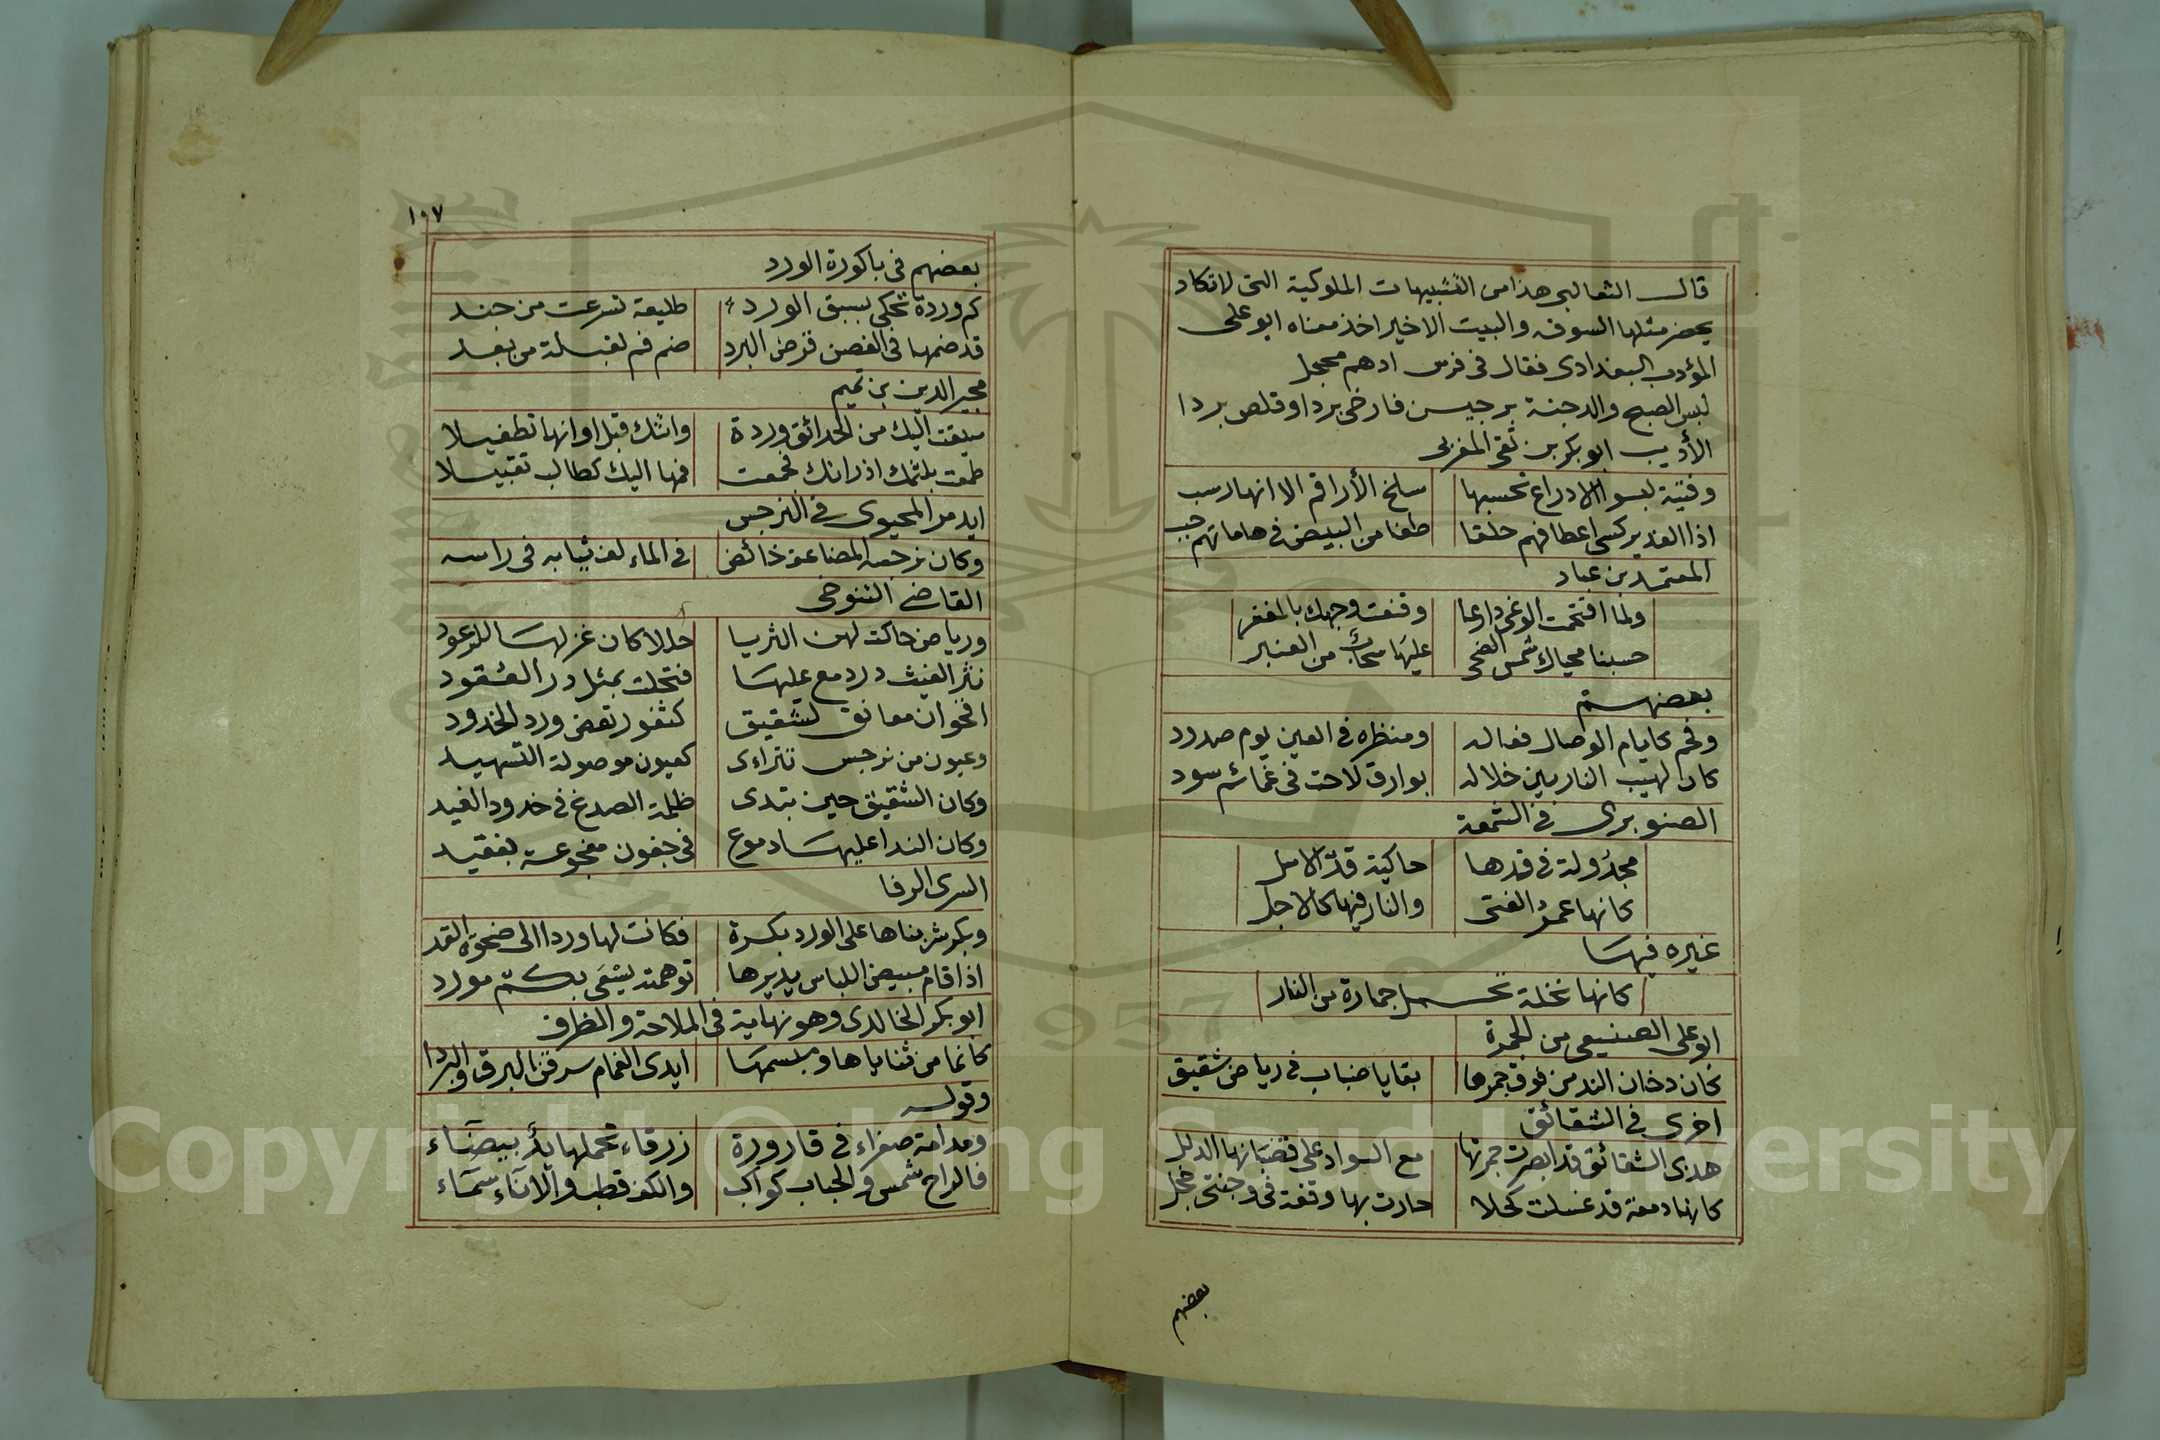 قال الثعالبى هذا من التشبيهات الملوكية التى لا تكاد
يحضر مثلها السوقه والبيت الاخير اخذ معناه ابو على
المؤدب البغدادى فقال فى فرس ادهم محجل
لبس الصبح والدجنة برجيسن فارخى بردا وقلص بردا
الأديب ابو بكر بن تقى المغربى
وفتية لبسوا الادراع تحسبها سلخ الأراقم الا انها رسب
اذا الغدير كسى اعطافهم حلقا طفا من البيض فى هاماتهم حبب
المعتمد بن عباد
ولما اقتحمت الوغى دارعا وقنعت وجهك بالمغفر
حسبنا محياك شمس الضحى عليها سحاب من العنبر
بعضهم
وفحم كايام الوصال فعاله ومنظره فى العين يوم صدود
كان لهيب النار بين خلاله بوارق لاحت فى غمائم سود
الصنوبرى فى الشمعة
مجدولة فى قدها حاكية قد الاسل
كانها عمر الفتى والنار فيها كالاجل
غيره فيها
كانها نخلة تحمل جمارة من النار
ابو على الصنيعى من الجمرة
كان دخان الند من فوق جمرها بقايا ضباب فى رياض شقيق
اخرى فى الشقائق
هدى الشقائق قد ابصرت حمرتها مع السواد على قضبانها الدلل
كانها دمعة قد غسلت كحلا حارت بها وقفة فى وجنتى خجل
بعضهم
١٠٧
بعضهم فى باكورة الورد
كم وردة تحكى بسبق الورد طليعة تسرعت من جند
قد ضمها فى الغصن قرض البرد ضم فم لقبلة من بعد
مجير الدين بن تميم
سيقت اليك من الحدائق وردة واتتك قبل اوانها تطفيلا
طمعت بلثمك اذ راتك فجمعت فمها اليك كطالب تقبيلا
ايدمر المحيوى فى النرجس
وكان نرجسه المضاعف خائض فى الماء لف ثيابه فى راسه
القاضى التنوخى
ورياض حاكت لهن الثريا حللا كان غزلها للرعود
نثر الغيث در دمع عليها فتحلت بمثل در العقود
اقحوان معانق لشقيق كثغور تعض ورد الخدود
وعيون من نرجس تتراءى كعيون موصولة التسهيد
وكان الشقيق حين تبدى ظلمة الصدغ فى خدود الغيد
وكان الندا عليها دموع فى جفون مفجوعة بفقيد
السرى الرفا
وبكر شربناها على الورد بكرة فكانت لها وردا الى ضحوة الغد
اذا قام مبيض اللباس يديرها توهمته يسعى بكم مورد
ابو بكر الخالدى وهو نهاية فى الملاحة والظرف
كانما من ثناياها ومبسمها ايدى الغمام سرقن البرق والبردا
وقوله
ومدامة صفراء فى قارورة زرقاء تحملها يد بيضاء
فالراح شمس والحباب كواكب والكف قطب والآناء سماء
Copyright © King Saud University
1957